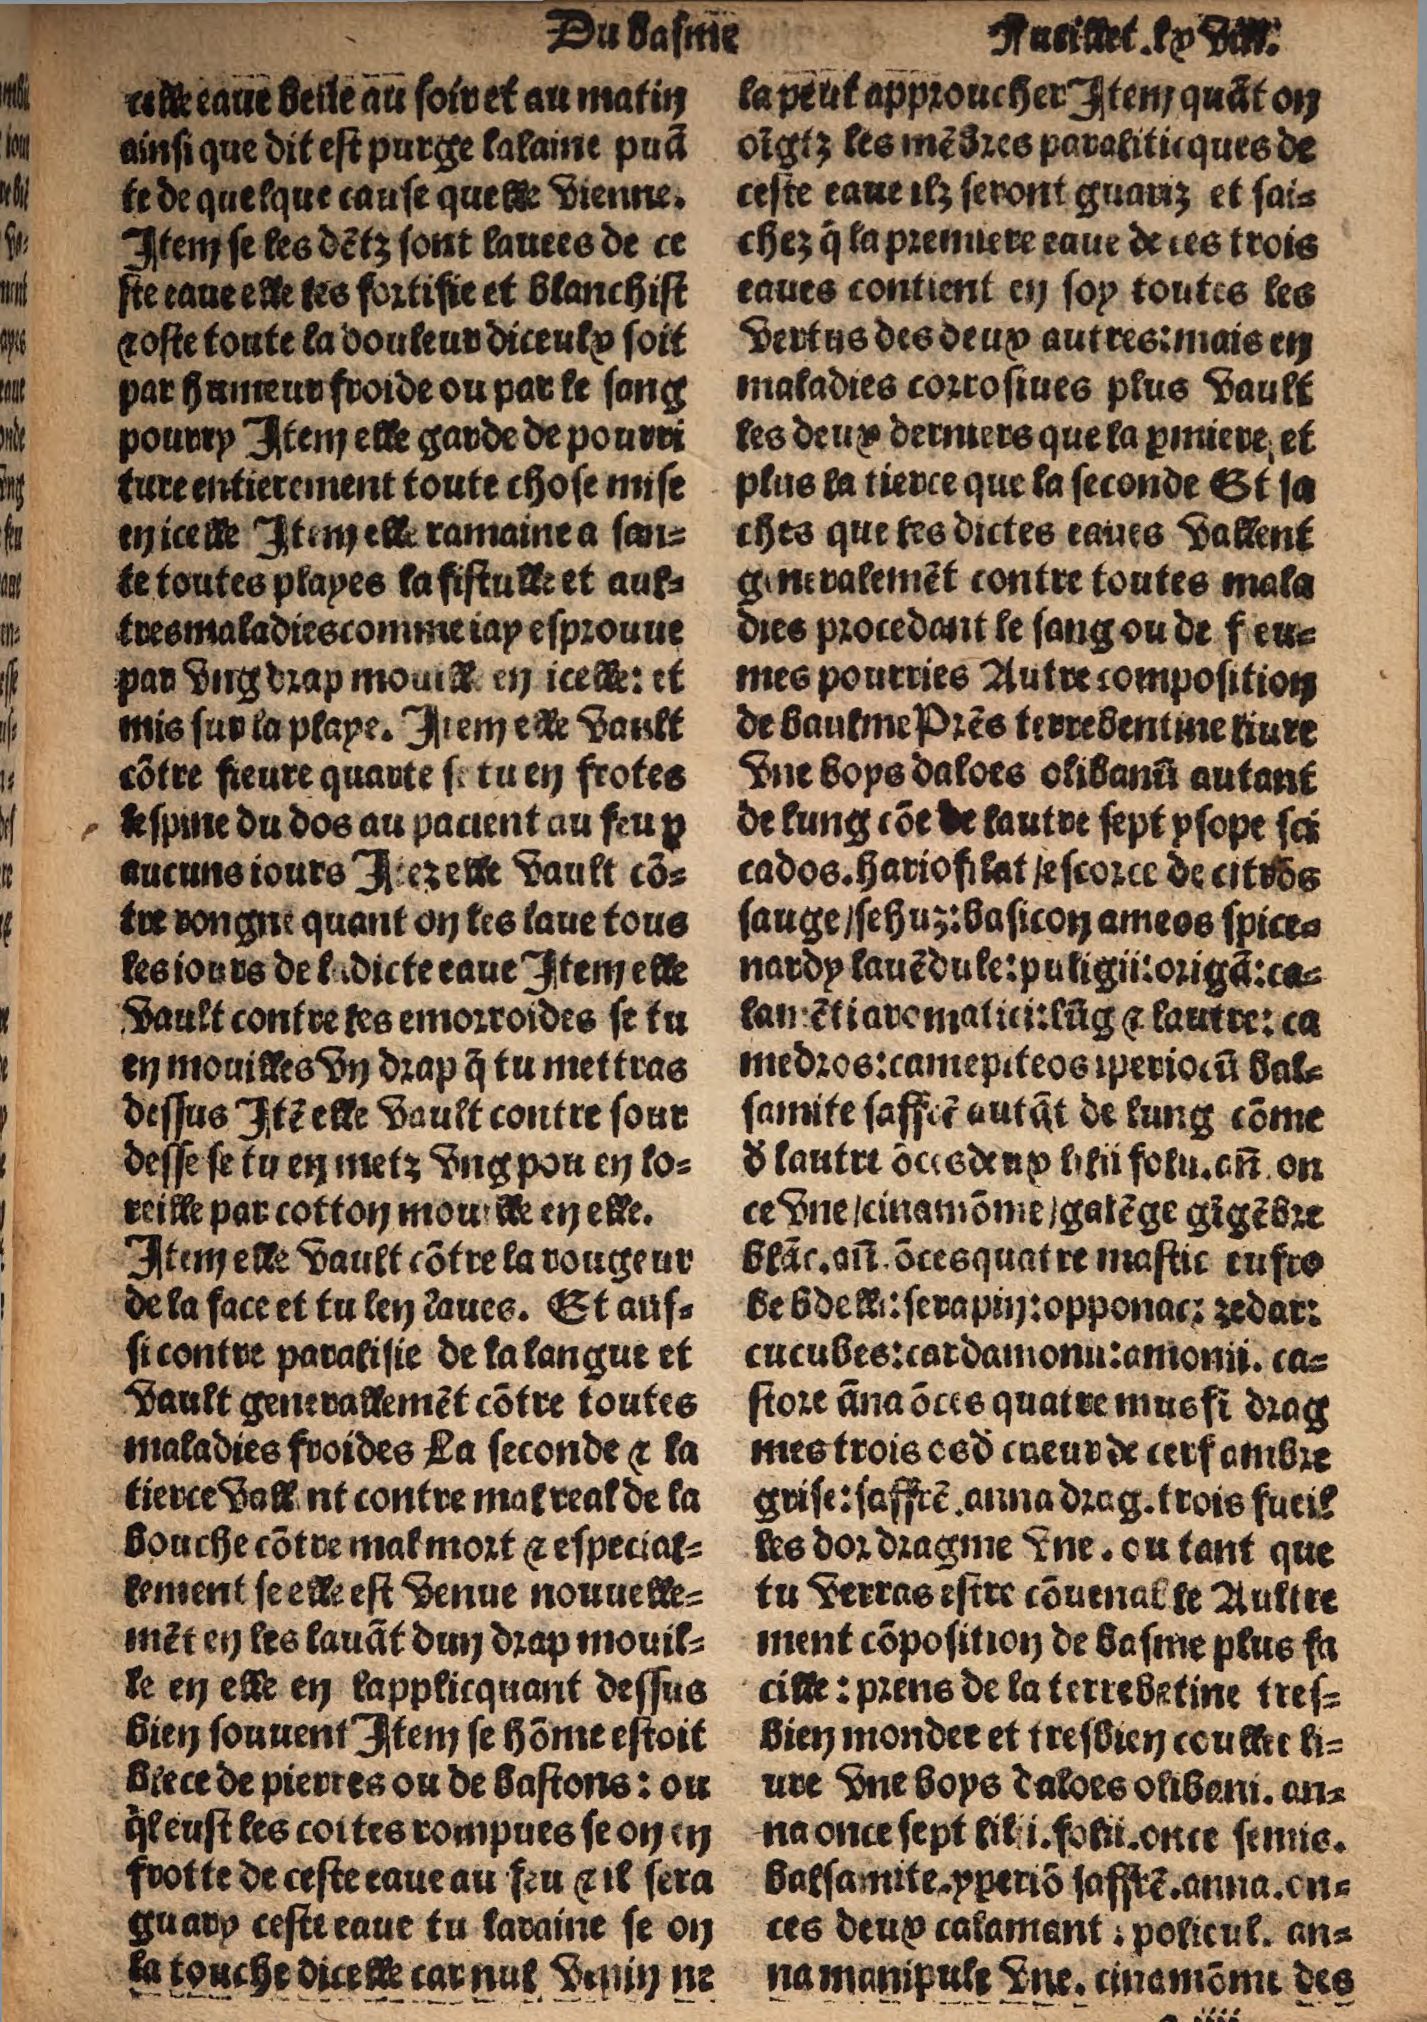 Du basme
Fueillet.lxviii.
celle eaue belle au soir et au matin
ainsi que dit est purge lalaine puã
te de quelque cause quelle vienne.
Item se les dẽtz sont lauees de ce
ste eaue elle les fortifie et blanchist
⁊ oste toute la douleur diceulx soit
par humeur froide ou par le sang
pourry Item elle garde de pourri
ture entierement toute chose mise
en icelle Item elle ramaine a san-
te toutes playes la fistulle et aul-
tres maladies comme iay esprouue
par vng drap mouille en icelle: et
mis sur la playe. Item elle vault
cõtre fieure quarte se tu en frotes
lespine du dos au pacient au feu p
aucuns iours Itez elle vault cõ-
tre rongne quant on les laue tous
les iours de ladicte eaue Item elle
vault contre les emorroides se tu
en mouilles vn drap q̃ tu mettras
dessus Itẽ elle vault contre sour
desse se tu en metz vng pou en lo-
reille par cotton mouille en elle.
Item elle vault cõtre la rougeur
de la face et tu len laues. Et aus-
si contre paralisie de la langue et
vault generallemẽt cõtre toutes
maladies froides La seconde ⁊ la
tierce vallent contre mal real de la
bouche cõtre mal mort ⁊ especial-
lement se elle est venue nouuelle-
mẽt en les lauãt dun drap mouil-
le en elle en lapplicquant dessus
bien souuent Item se hõme estoit
blece de pierres ou de bastons: ou
q̃l eust les costes rompues se on en
frotte de ceste eaue au feu ⁊ il sera
guary ceste eaue tu laraine se on
la touche dicelle car nul venin ne
la peut approucher Item quãt on
oĩgtz les mẽbres paraliticques de
ceste eaue ilz seront guariz et sai-
chez q̃ la premiere eaue de ces trois
eaues contient en soy toutes les
vertus des deux autres: mais en
maladies corrosiues plus vault
les deux derniers que la p̱miere, et
plus la tierce que la seconde Et sa
ches que les dictes eaues vallent
generalemẽt contre toutes mala
dies procedant le sang ou de fleu-
mes pourries Autre composition
de baulme Prẽs terrebentine liure
vne boys daloes olibanũ autant
de lung cõe de lautre sept ysope sti
cados. hariofilat/escorce de citrõs
sauge/sehuz: basicon ameos spice-
nardy lauẽdule: puligii: origã: ca-
lamẽti aromatici: lũg ⁊ lautre: ca
medros: camepiteos iperiocũ bal-
samite saffrẽ autãt de lung cõme
d̃ lautre õces deux lilii folii. añ. on
ce vne/cinamõme/galẽge gĩgẽbre
blãc. añ. õces quatre mastic eufro
be bdelli: serapin: opponac: zedar:
cucubes: cardamonii: amonii. ca-
store ãna õces quatre muski drag
mes trois os d̃ cueur de cerf ambre
grise: saffrẽ. anna drag. trois fueil
les dor dragme vne. ou tant que
tu verras estre cõuenable Aultre
ment cõposition de basme plus fa
cille: prens de la terrebetine tres-
bien mondee et tresbien coullee li-
ure vne boys daloes olibani. an-
na once sept lilii. folii. once semis.
balsamite. yperiõ saffrẽ. anna. on-
ces deux calament: policul. an-
na manipule vne. cinamõme des